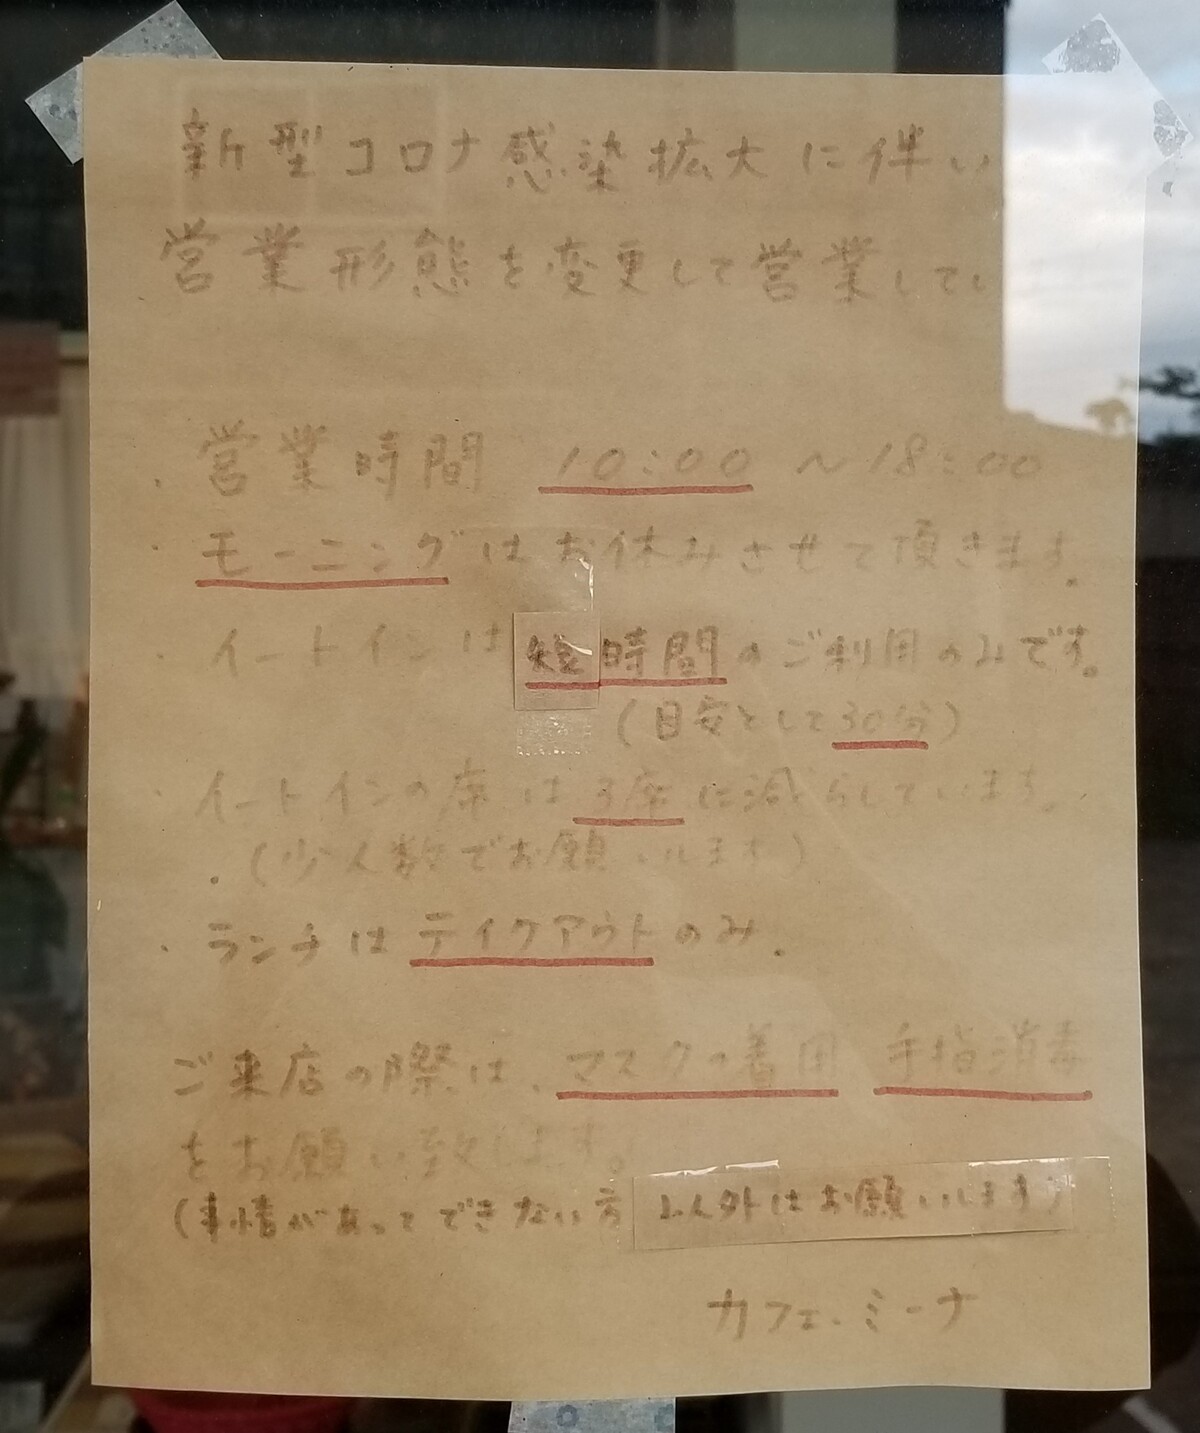 新型コロナ感染拡大に伴い
営業形態を変更して営業してい
・営業時間 10:00 ~18:00
・モーニングはお休みさせて頂きます。
・イートインは短時間のご利用のみです。
(目安として30分)
・イートインの席は3席に減らしています。
(少人数でお願いします)
・ランチはテイクアウトのみ.
ご来店の際は、マスクの着用 手指消毒
をお願い致します。
(事情があってできない方以外はお願いします)
カフェ・ミーナ